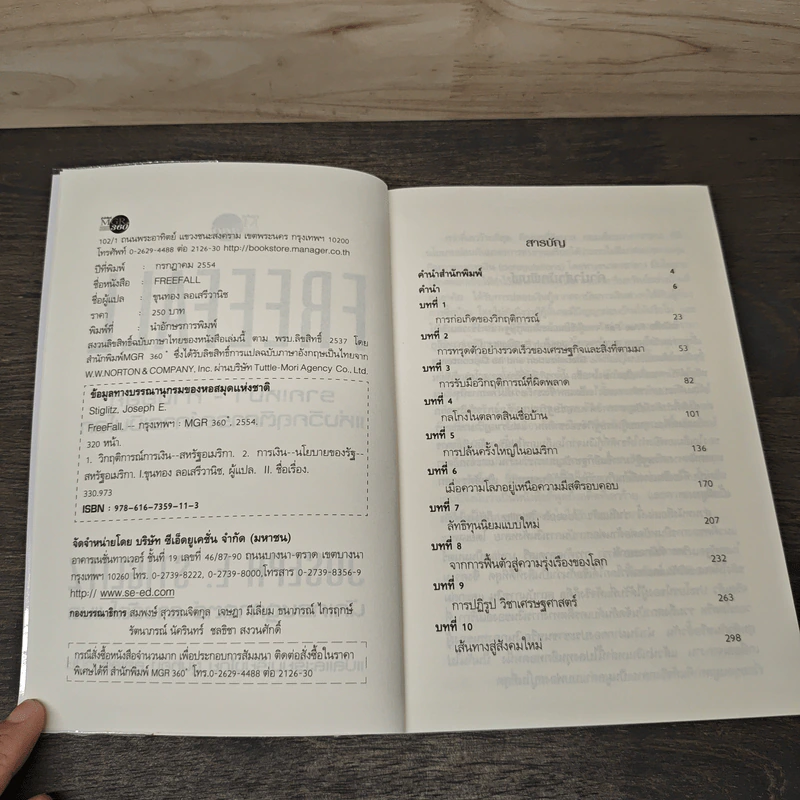 MGR
360°
102/1 ถนนพระอาทิตย์ แขวงชนะสงคราม เขตพระนคร กรุงเทพฯ 10200
โทรศัพท์ 0-2629-4488 ต่อ 2126-30 http://bookstore.manager.co.th
ปีที่พิมพ์ : กรกฎาคม 2554
ชื่อหนังสือ : FREEFALL
ชื่อผู้แปล : ขุนทอง ลอเสรีวานิช
ราคา : 250 บาท
พิมพ์ที่ : นำอักษรการพิมพ์
สงวนลิขสิทธิ์ฉบับภาษาไทยของหนังสือเล่มนี้ ตาม พรบ.ลิขสิทธิ์ 2537 โดย
สำนักพิมพ์MGR 360° ซึ่งได้รับลิขสิทธิ์การแปลฉบับภาษาอังกฤษเป็นไทยจาก
W.W.NORTON & COMPANY, Inc. ผ่านบริษัท Tuttle-Mori Agency Co., Ltd.
ข้อมูลทางบรรณานุกรมของหอสมุดแห่งชาติ
Stiglitz, Joseph E.
FreeFall. — กรุงเทพฯ : MGR 360°, 2554.
320 หน้า.
1. วิกฤติการณ์การเงิน--สหรัฐอเมริกา. 2. การเงิน--นโยบายของรัฐ--
สหรัฐอเมริกา. I.ขุนทอง ลอเสรีวานิช, ผู้แปล. II. ชื่อเรื่อง.
330.973
ISBN : 978-616-7359-11-3
จัดจำหน่ายโดย บริษัท ซีเอ็ดยูเคชั่น จำกัด (มหาชน)
อาคารเนชั่นทาวเวอร์ ชั้นที่ 19 เลขที่ 46/87-90 ถนนบางนา-ตราด เขตบางนา
กรุงเทพฯ 10260 โทร. 0-2739-8222, 0-2739-8000,โทรสาร 0-2739-8356-9
http:// www.se-ed.com
กองบรรณาธิการ สมพงษ์ สุวรรณจิตกุล เจษฎา มีเลี่ยม ธนาภรณ์ ไกรฤกษ์
รัตนาภรณ์ นัครินทร์ ชลธิชา สงวนศักดิ์
กรณีสั่งซื้อหนังสือจำนวนมาก เพื่อประกอบการสัมมนา ติดต่อสั่งซื้อในราคา
พิเศษได้ที่ สำนักพิมพ์ MGR 360° โทร.0-2629-4488 ต่อ 2126-30
สารบัญ
คำนำสำนักพิมพ์ 4
คำนำ 6
บทที่ 1
การก่อเกิดของวิกฤติการณ์ 23
บทที่ 2
การทรุดตัวอย่างรวดเร็วของเศรษฐกิจและสิ่งที่ตามมา 53
บทที่ 3
การรับมือวิกฤติการณ์ที่ผิดพลาด 82
บทที่ 4
กลโกงในตลาดสินเชื่อบ้าน 101
บทที่ 5
การปล้นครั้งใหญ่ในอเมริกา 136
บทที่ 6
เมื่อความโลภอยู่เหนือความมีสติรอบคอบ 170
บทที่ 7
ลัทธิทุนนิยมแบบใหม่ 207
บทที่ 8
จากการฟื้นตัวสู่ความรุ่งเรืองของโลก 232
บทที่ 9
การปฏิรูป วิชาเศรษฐศาสตร์ 263
บทที่ 10
เส้นทางสู่สังคมใหม่ 298